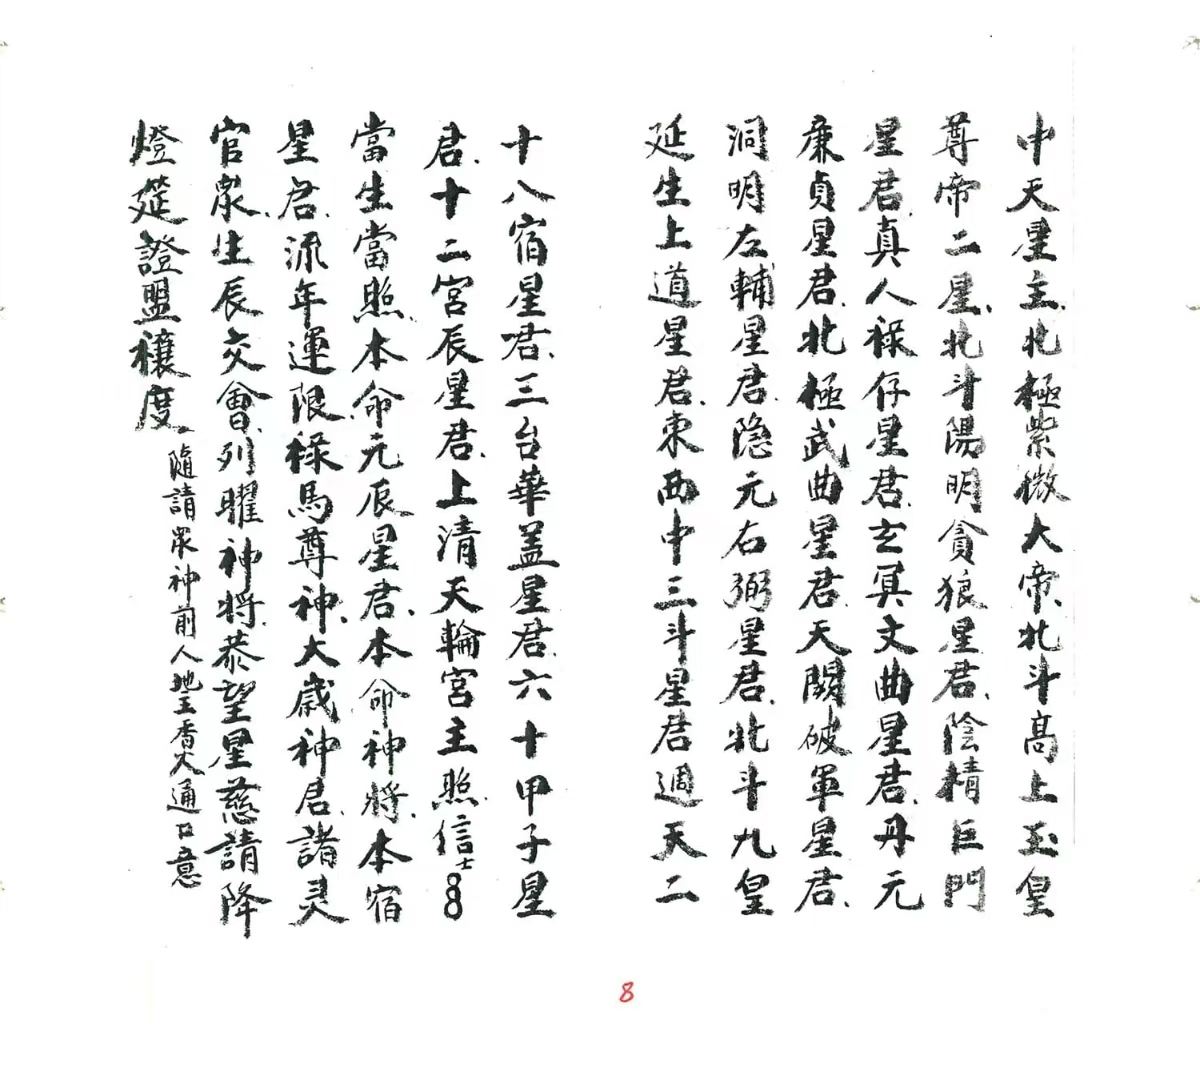 中天星主、北極紫微大帝、北斗高上玉皇
尊帝二星、北斗陽明貪狼星君、陰精巨門
星君、真人祿存星君、玄冥文曲星君、丹元
廉貞星君、北極武曲星君、天關破軍星君、
洞明左輔星君、隐元右弼星君、北斗九皇
延生上道星君、東西中三斗星君週天二
十八宿星君、三台華盖星君、六十甲子星
君、十二宮辰星君、上清天輪宮主照、信士
當生當照本命元辰星君、本命神將、本宿
星君、流年運限、祿馬尊神、大歲神君、諸灵
官眾、生辰交會、列曜神將、恭望星慈請降
燈筵證盟禳度、
隨請眾神前人地主香火通口意
8